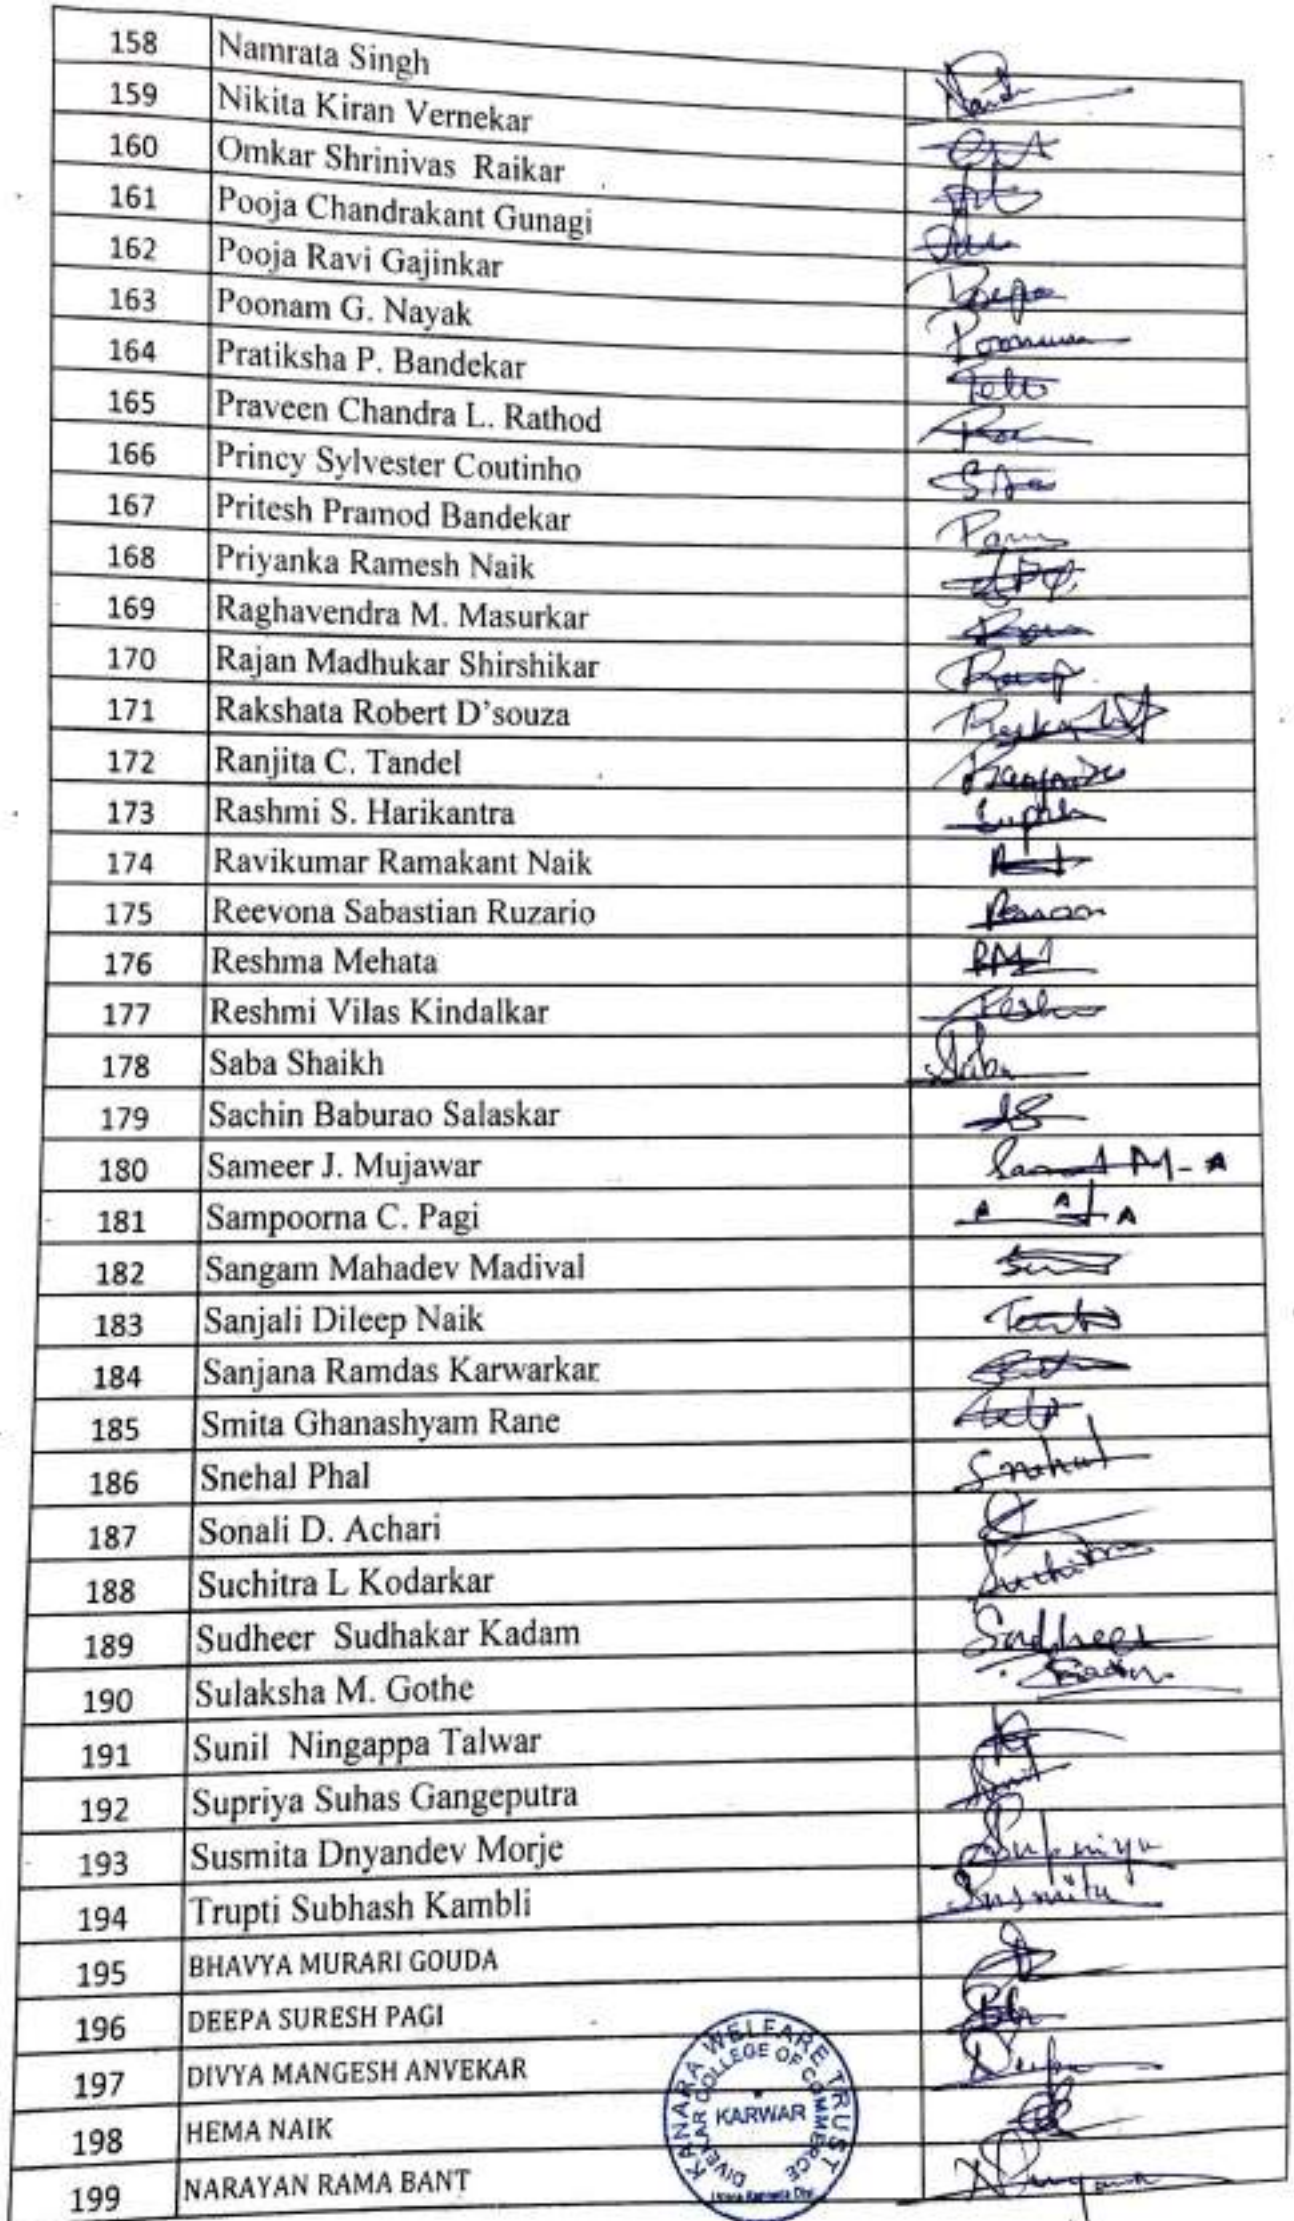 158 Namrata Singh
159 Nikita Kiran Vernekar
160 Omkar Shrinivas Raikar
161 Pooja Chandrakant Gunagi
162 Pooja Ravi Gajinkar
163 Poonam G. Nayak
164 Pratiksha P. Bandekar
165 Praveen Chandra L. Rathod
166 Princy Sylvester Coutinho
167 Pritesh Pramod Bandekar
168 Priyanka Ramesh Naik
169 Raghavendra M. Masurkar
170 Rajan Madhukar Shirshikar
171 Rakshata Robert D'souza
172 Ranjita C. Tandel
173 Rashmi S. Harikantra
174 Ravikumar Ramakant Naik
175 Reevona Sabastian Ruzario
176 Reshma Mehata
177 Reshmi Vilas Kindalkar
178 Saba Shaikh Saba
179 Sachin Baburao Salaskar
180 Sameer J. Mujawar
181 Sampoorna C. Pagi
182 Sangam Mahadev Madival
183 Sanjali Dileep Naik
184 Sanjana Ramdas Karwarkar
185 Smita Ghanashyam Rane
186 Snehal Phal Snehal
187 Sonali D. Achari
188 Suchitra L Kodarkar Suchitra
189 Sudheer Sudhakar Kadam Sudheer
190 Sulaksha M. Gothe
191 Sunil Ningappa Talwar
192 Supriya Suhas Gangeputra
193 Susmita Dnyandev Morje Supriya
194 Trupti Subhash Kambli Susmita
195 BHAVYA MURARI GOUDA
196 DEEPA SURESH PAGI
197 DIVYA MANGESH ANVEKAR
198 HEMA NAIK
199 NARAYAN RAMA BANT
KANARA WELFARE TRUST
DIVEKAR COLLEGE OF COMMERCE
KARWAR